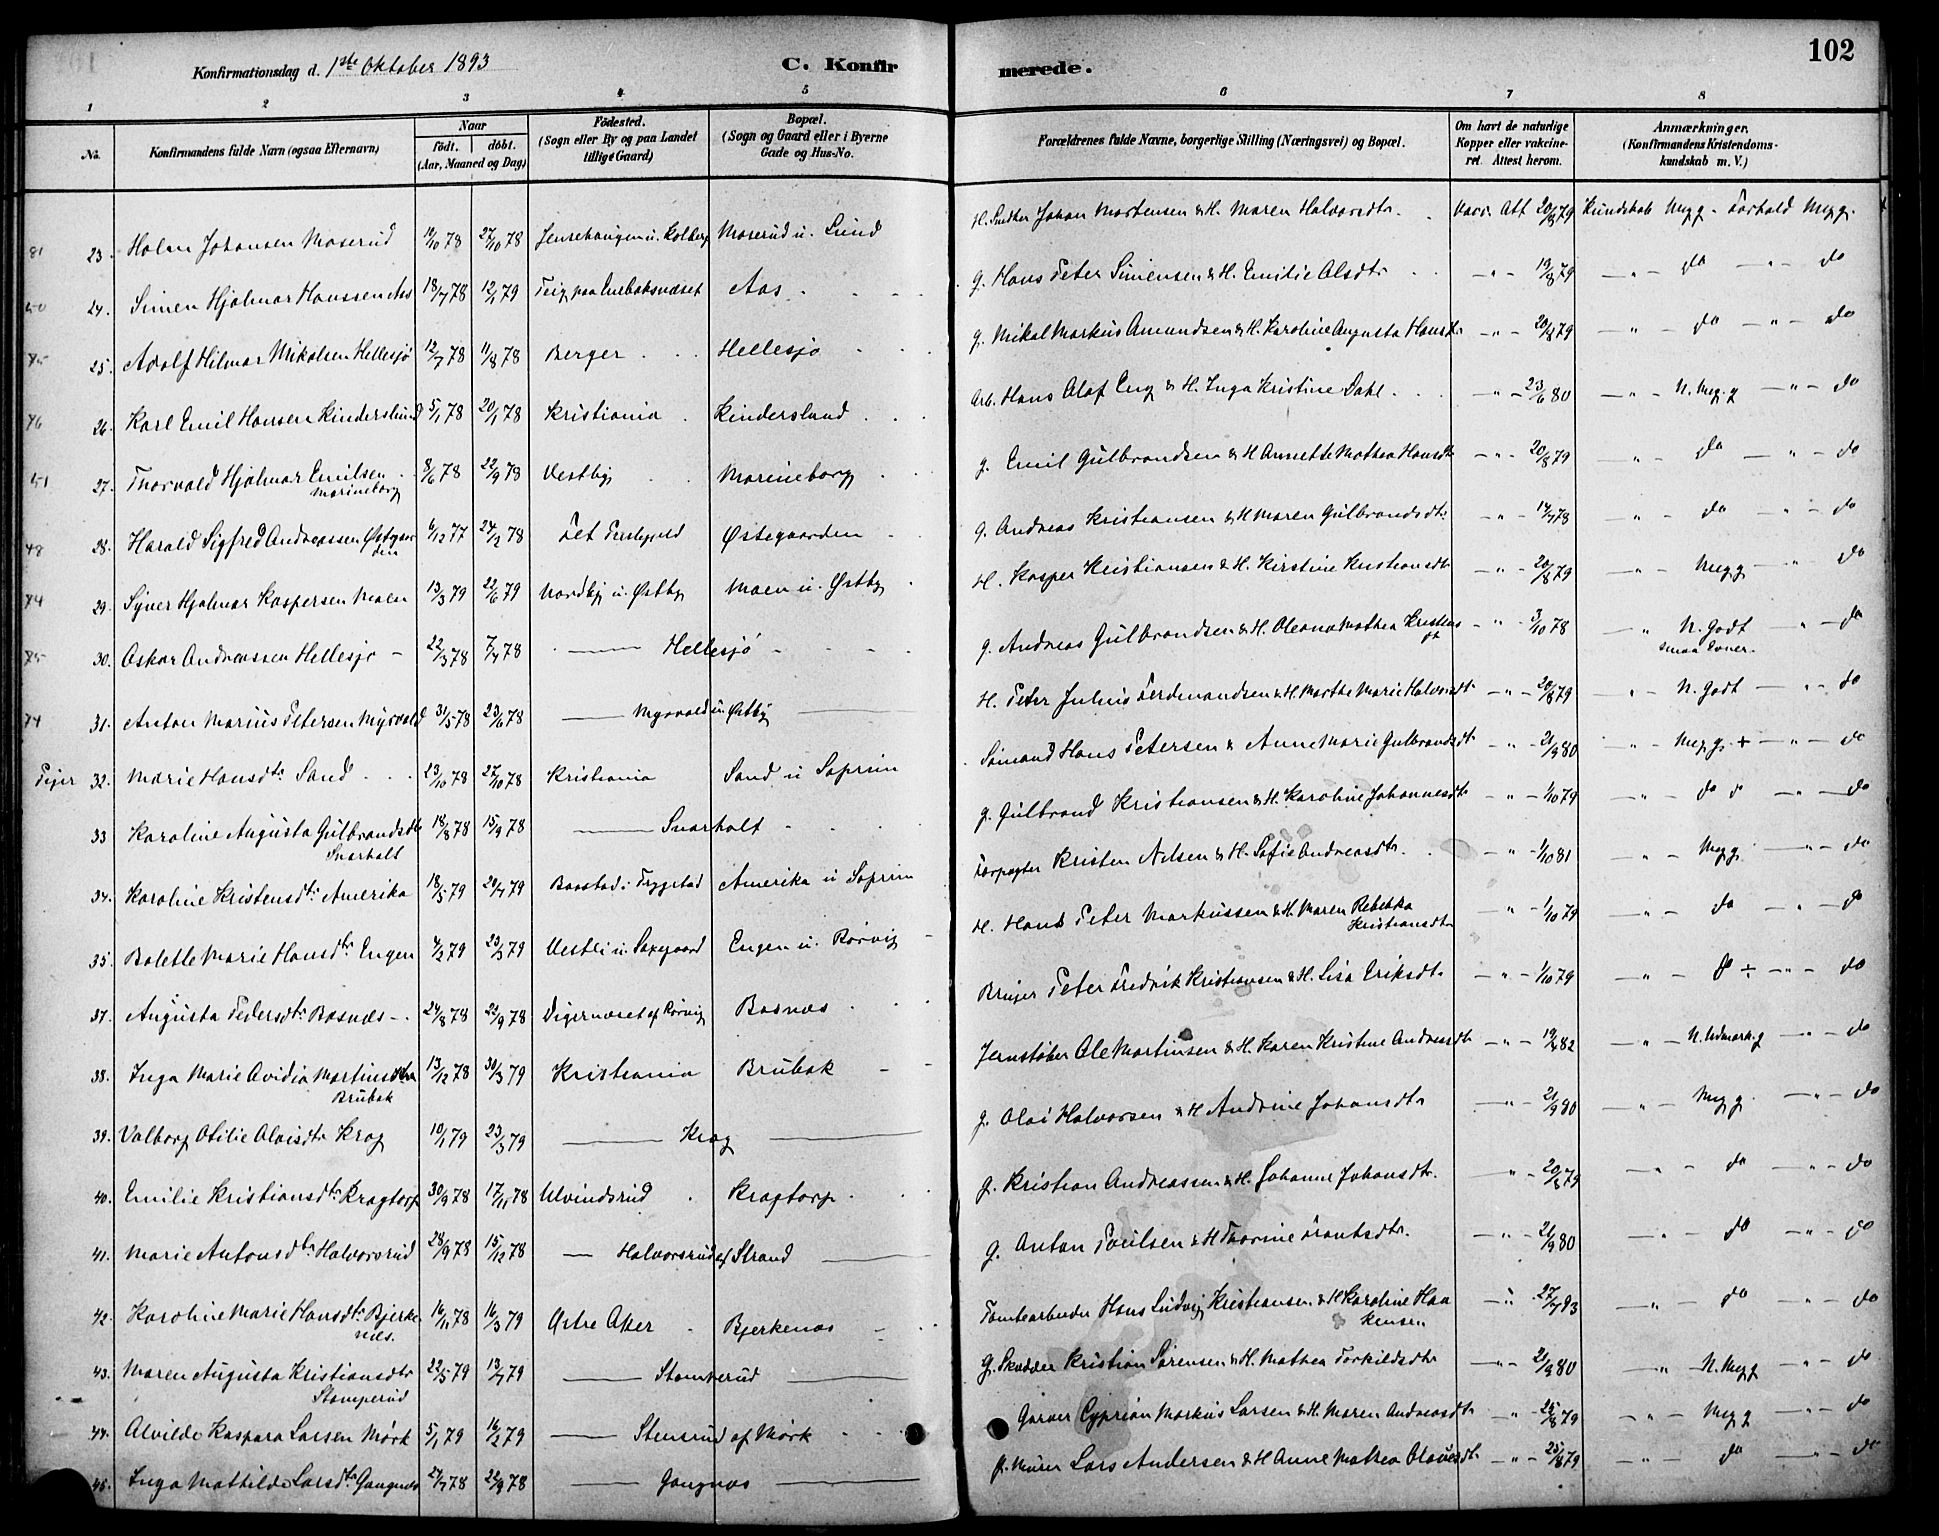 102
Konfirmationsdag d. 1ste Oktober 1893
C. Konfir merede.
1 2 3 4 5 6 7 8
No.
Konfirmandens fulde Navn (ogsaa Efternavn)
Naar
født. døbt.
(Aar, Maaned og Dag)
Fødested.
(Sogn eller By og paa Landet
tillige Gaard)
Bopæl.
(Sogn og Gaard eller i Byerne
Gade og Hus-No.
Forældrenes fulde Navne, borgerlige Stilling (Næringsvei) og Bopæl.
Om havt de naturlige
Kopper eller vakcine-
ret. Attest herom.
Anmærkninger.
(Konfirmandens Kristendoms-
kundskab m. V.)
81 23. Holm Johansen Moserud 19/10 78 27/10 78 Jensehaugen u. Kolberg Moserud u. Lund H. Smther Johan Mortensen & H. Maren Halvorsdtr. Vacc. Att 20/8 79 Kundskab Meg g. Forhold Meg g.
50 24. Simen Hjalmar Hanssen Aas 18/7 78 12/1 79 Teig paa Enebaknæset Aas g. Hans Peter Simensen & H. Emilie Olsdtr. 19/8 79 do do
85 25. Adolf Hilmar Mikalsen Hellesjø 12/7 78 11/8 78 Berger Hellesjø g. Mikal Markus Amundsen & H. Karoline Augusta Hansdtr. 20/8 79 do do
76 26. Karl Emil Hansen Kinderslund 5/1 78 20/1 78 Kristiania Kindersland Arb. Hans Olaf Eng & H. Inga Kristine Dahl. 23/6 80 N. Meg. g do
51 27. Thorvald Hjalmar Emilsen 8/6 78 22/9 78 Vestby Marineborg g. Emil Gulbrandsen & H Annette Mathea Hansdtr 20/8 79 do do
Marineborg
48 28. Harald Sigfred Andreassen Østegaar 6/12 77 24/2 78 Fet Østegaarden g. Andreas Kristiansen & H Maren Gulbrandsdtr. 14/7 78 do do
den
74 29. Syver Hjalmar Kaspersen Moen 13/3 79 22/6 79 Nordby u. Østby Moen u. Østby H. Kasper Kristiansen & H. Kirstine Kristiansdtr 20/8 79 Meg g do
85 30. Oskar Andreassen Hellesjø 22/3 78 7/4 78 Hellesjø g. Andreas Gulbrandsen & H. Oleana Mathea Kristens 3/10 78 N. Godt do
dt smaa Evner.
74 31. Anton Marius Petersen Myrvold 31/5 78 23/6 78 Myrvold u. Østby H. Peter Julius Ferdinandsen & H. Marthe Marie Halvorsdtr. 20/8 79 N. Godt do
32. Marie Hansdtr. Sand 23/10 78 27/10 78 Kristiania Sand u Soprim Sømand Hans Petersen & Anne Marie Gulbrandsdtr. 21/9 80 Meg g. + do
33 Karoline Augusta Gulbrandsdtr 18/8 78 15/9 78 Snarholt g. Gulbrand Kristiansen & H. Karoline Johannesdtr. 1/10 79 do do
Snarholt
34. Karoline Kristensdtr. Amerika 18/5 79 20/7 79 Baastad i Trygstad Amerika u Soprim Forpagter Kristen Nilsen & H. Sofie Andreasdtr. 1/10 81 Meg g. do
35. Bolette Marie Hansdtr. Engen 4/2 79 23/3 79 Vestli u. Saxegaard Engen u. Børvig H. Hans Peter Markussen & H. Maren Rebekka 1/10 79 do do
Kristiansdtr
37. Augusta Pedersdtr. Bosnæs 24/8 78 22/9 78 Digernæset af Rørvig Bosnæs Bruger Peter Fredrik Kristiansen & H. Lisa Eriksdtr. 1/10 79 do ÷ do
38. Inga Marie Ovidia Martinsdtr 13/12 78 30/3 79 Kristiania Brubak Jernstøber Ole Martinsen & H. Karen Kristine Andreasdtr 19/4 82 N. Udmerk. g do
Brubak
39. Valborg Otilie Olaisdtr Krog 10/1 79 23/3 79 Krog g. Olai Halvorsen & H Andrine Johansdtr 21/9 80 Meg g. do
40. Emilie Kristiansdtr. Kragtorp 30/9 78 17/11 78 Ulvindsrud Kragtorp g. Kristian Andreassen & H. Johanne Johansdtr. 20/8 79 do do
41. Marie Antonsdtr. Halvorsrud 28/9 78 15/12 78 Halvorsrud af Strand g. Anton Poulsen & H Thorine Frantsdtr. 21/9 80 do do
42. Karoline Marie Hansdtr. Bjerke 16/11 78 16/3 79 Østre Aker Bjerkenæs Tomtearbeider Hans Ludvig Kristiansen & H Karoline Haa 27/7 93 do do
næs. kensen
43. Maren Augusta Kristiansdtr 22/5 79 13/7 79 Stomperud G. Skrædder Kristian Sørensen & H. Mathea Torkildsdtr 21/9 80 N. Meg g do
Stomperud
44. Alvilde Kaspara Larsen Mørk 5/1 79 16/2 79 Stensrud af Mørk Garver Cyprian Markus Larsen & H. Maren Andreasdtr 25/8 79 Meg g do
45. Inga Mathilde Larsdtr Gangnæs 21/7 78 22/9 78 Gangnæs g. Murer Lars Andersen & H Anne Mathea Olausdtr 25/8 79 do do